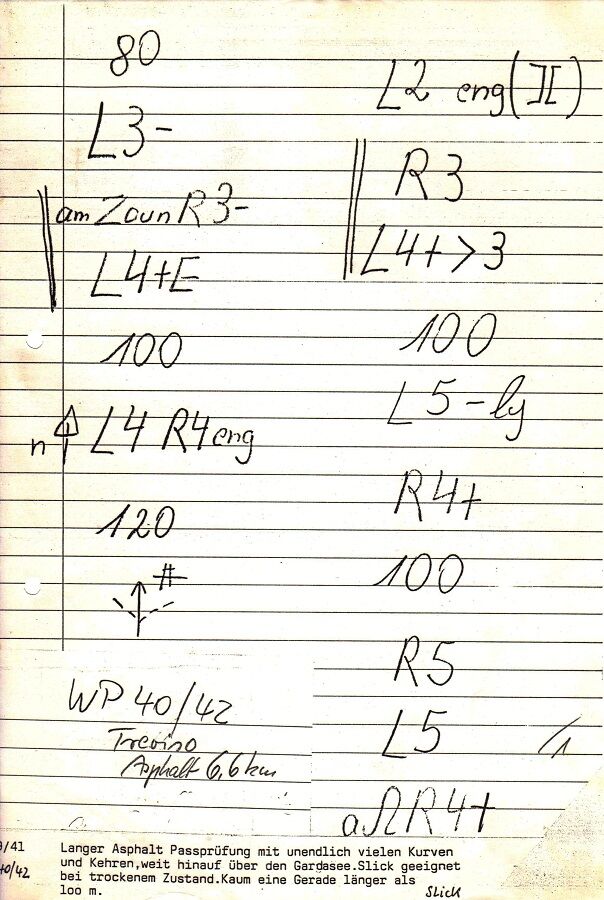 80
L3-
am Zaun R3-
L4+E
100
n L4 R4 eng
120
#
WP 40/42
Treviso
Asphalt 6,6 km
L2 eng (II)
R3
L4+>3
100
L5-lg
R4+
100
R5
L5
/1
a Ω R4+
/41
40/42
Langer Asphalt Passprüfung mit unendlich vielen Kurven
und Kehren,weit hinauf über den Gardasee.Slick geeignet
bei trockenem Zustand.Kaum eine Gerade länger als
loo m.
Slick